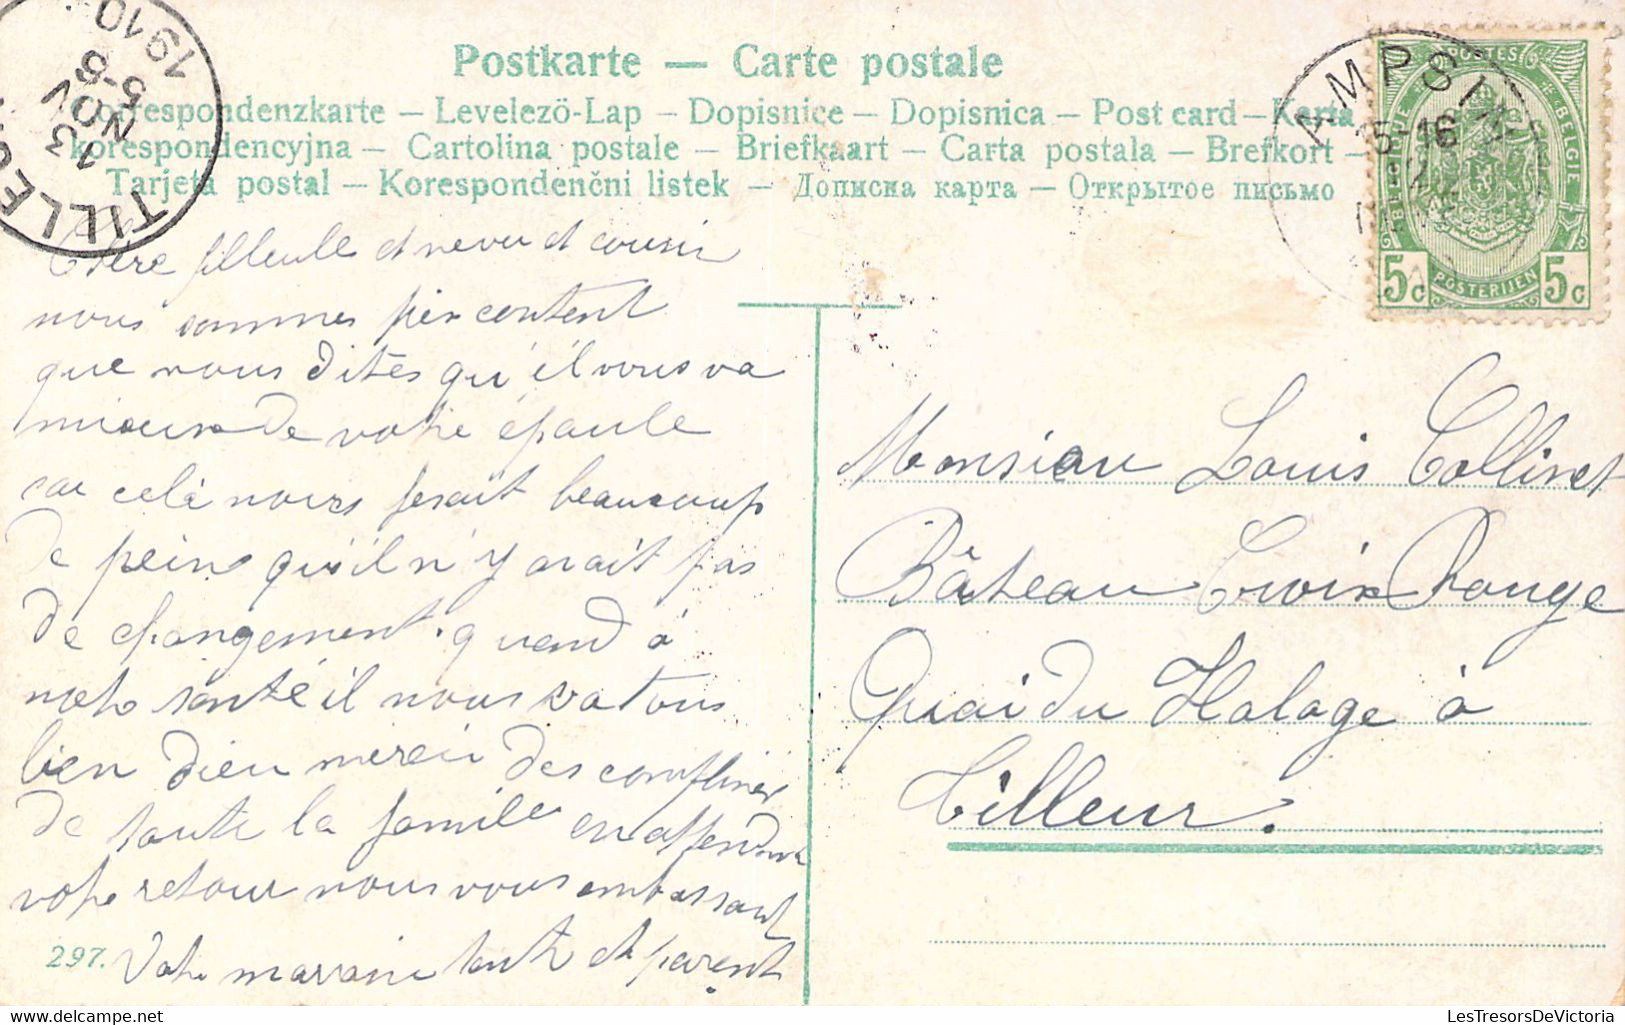 Postkarte — Carte postale
Correspondenzkarte – Levelezö-Lap – Dopisnice – Dopisnica – Post card – Karta
korespondencyjna – Cartolina postale – Briefkaart – Carta postala – Brefkort –
Tarjeta postal – Korespondenčni listek – Дописна карта – Открытое письмо
TILLEUR
13
NOV
5-6
1910
AMPSIN
15-16
POSTES
BELGIQUE
BELGIE
5c
POSTERIJEN
5c
Chère filleule et nevu et cousin
nous sommes bien content
que vous dites qu'il vous va
mieux de votre épaule
car celà nous ferait beaucoup
de peine qu'il n'y arait pas
de changement. quand à
notre santé il nous va tous
bien dieu mercie des compliments
de toute la famille en attendant
votre retour nous vous embassant
297.
Votre marraine tante et parent
Monsieur Louis Collinet
Bâteau Croix Rouge
Quai du Halage à
Tilleur.
LesTresorsDeVictoria